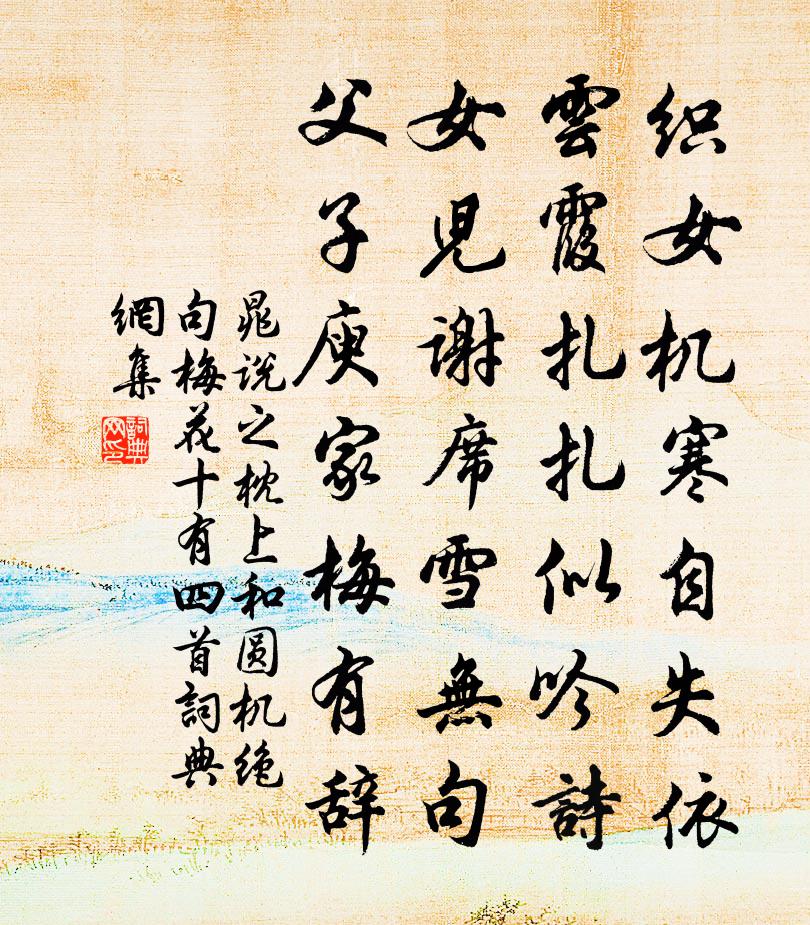 织女机寒自失依
雲霞扎扎似吟詩
女児謝席雪無句
父子庾家梅有辞
晁说之枕上和圆机绝
句梅花十有四首詞典
網集
詞典
网印